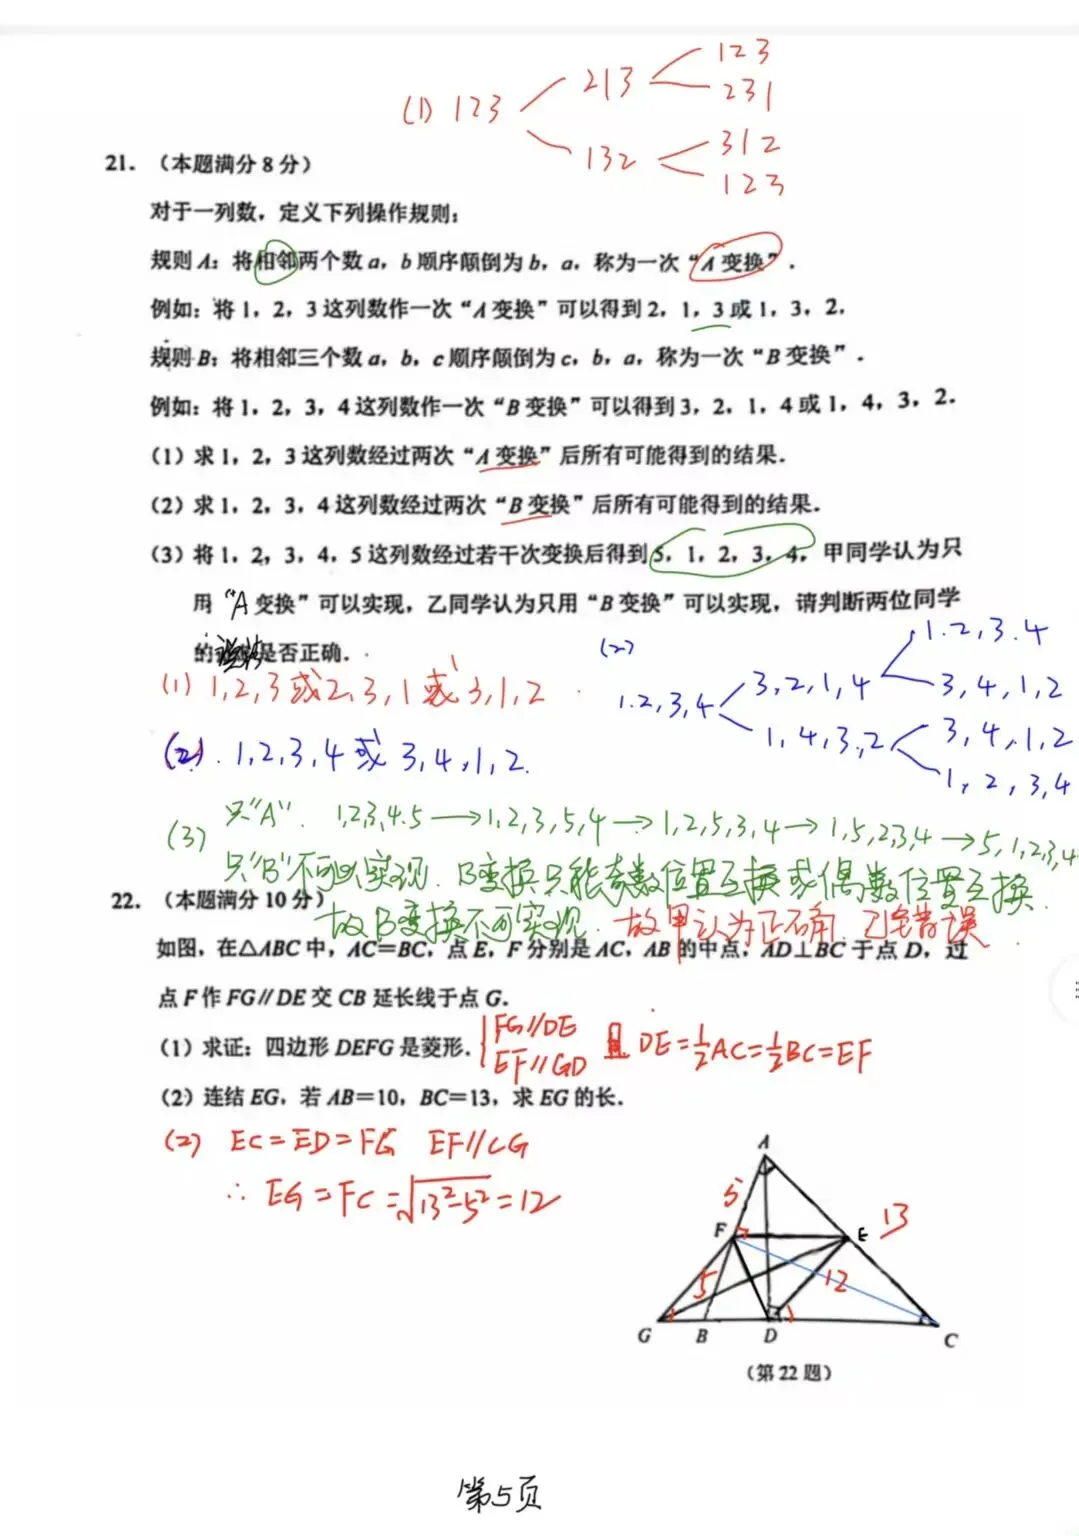 (1) 123
213
132
123
231
312
123
21. （本题满分8分）
对于一列数，定义下列操作规则：
规则A：将相邻两个数a，b顺序颠倒为b，a，称为一次“A变换”.
例如：将1，2，3这列数作一次“A变换”可以得到2，1，3或1，3，2.
规则B：将相邻三个数a，b，c顺序颠倒为c，b，a，称为一次“B变换”.
例如：将1，2，3，4这列数作一次“B变换”可以得到3，2，1，4或1，4，3，2.
（1）求1，2，3这列数经过两次“A变换”后所有可能得到的结果.
（2）求1，2，3，4这列数经过两次“B变换”后所有可能得到的结果.
（3）将1，2，3，4，5这列数经过若干次变换后得到5，1，2，3，4，甲同学认为只
用“A变换”可以实现，乙同学认为只用“B变换”可以实现，请判断两位同学
的 是否正确.
(1) 1,2,3或2,3,1或3,1,2
(2)
1.2,3,4
3,2,1,4
1,4,3,2
1.2,3.4
3,4,1,2
3,4,1,2
1,2,3,4
(2). 1,2,3,4或3,4,1,2.
(3) 只“A”. 1,2,3,4.5→1,2,3,5,4→1,2,5,3,4→1,5,2,3,4→5,1,2,3,4
只“B”不可以实现. B变换只能奇数位置互换或偶数位置互换.
故B变换不可实现. 故甲认为正确，乙错误.
22. （本题满分10分）
如图，在△ABC中，AC=BC，点E，F分别是AC，AB的中点，AD⊥BC于点D，过
点F作FG∥DE交CB延长线于点G.
（1）求证：四边形DEFG是菱形.
FG∥DE
EF∥GD
且 DE=½AC=½BC=EF
（2）连结EG，若AB=10，BC=13，求EG的长.
(2) EC=ED=FG EF∥CG
∴ EG=FC=√13²-5²=12
A
5
F
E
13
5
12
G
B
D
C
（第22题）
第5页